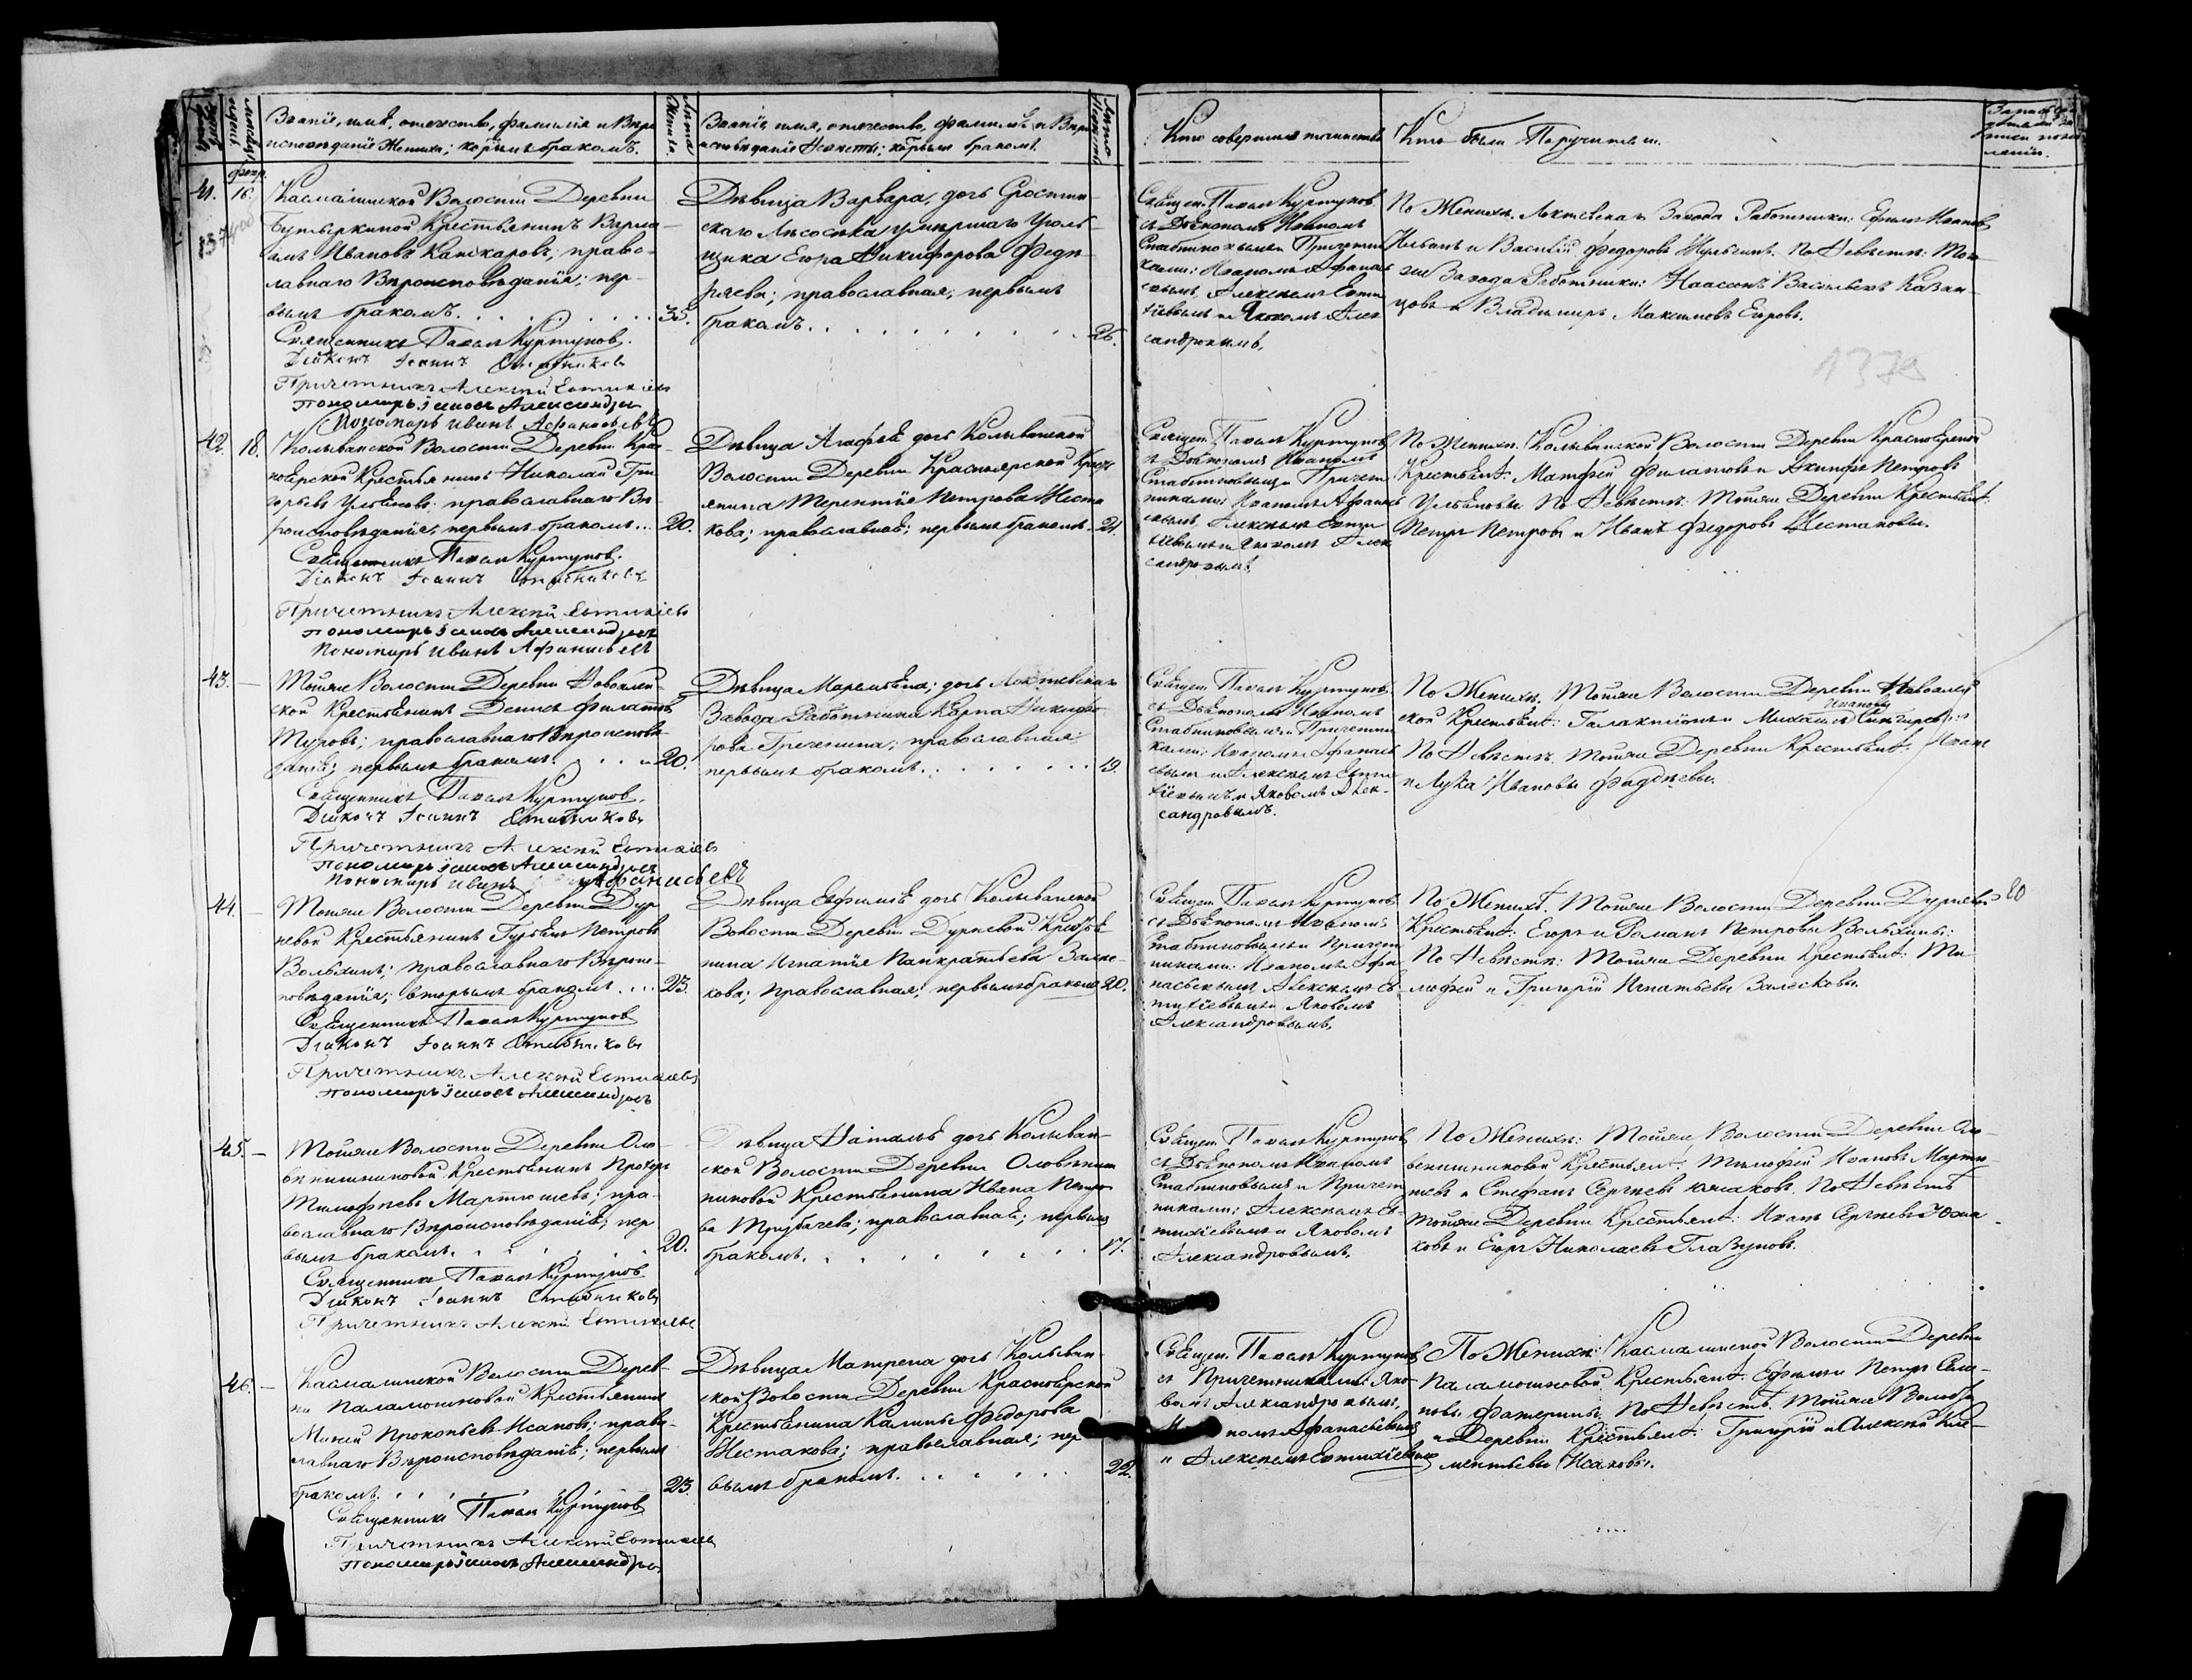 Званіе, имя, отечество, фамилія и Вѣро
исповѣданіе Жениха; коимъ бракомъ.
Лѣта Жениха
Званіе, имя, отечество, фамилія и Вѣро
исповѣданіе Невѣсты; коимъ бракомъ.
Кто совершилъ таинство
Кто были Поручители.
41.
16.
Касмалинской Волости Деревни
Бутыркиной Крестьянинъ
Ивановъ правос-
лавнаго Вѣроисповѣданія; пер-
вымъ бракомъ. 35.
Священникъ Павелъ Куртуков.
Діаконъ Іоаннъ Стабниковъ
Причетникъ Алексѣй Евтихіевъ
Пономарь Яковъ Александровъ
Пономарь Иванъ Афанасьевъ
Дѣвица Варвара, дочь
умершаго Уголь-
щика Егора Никифорова
православная; первымъ
бракомъ. 26.
Священ. Павелъ Куртуковъ
съ Діакономъ Иваномъ
Стабниковымъ и Причетни
ками: Иваномъ Афанас
евымъ, Алексѣемъ Евти
хіевымъ и Яковомъ Алек
сандровымъ.
По Женихѣ. Локтевскаго Завода Работники: Ефимъ Иванов
и Василій Федоровъ По Невѣстѣ: Того
же Завода Работники: Васильевъ Казан-
цовъ и Владимиръ Максимовъ Егоровъ.
1379
42.
18.
Колыванской Волости Деревни Крас-
ноярской Крестьянинъ Николай Гри
горьевъ Ульяновъ православнаго Вѣ
роисповѣданія, первымъ бракомъ... 20.
Священникъ Павелъ Куртуков.
Діаконъ Іоаннъ Стабниковъ
Причетникъ Алексѣй Евтихіевъ
Пономарь Яковъ Александровъ
Пономарь Иванъ Афанасьевъ
Дѣвица Агафья дочь Колыванской
Волости Деревни Красноярской Крест
янина Терентія Петрова Шеста
кова; православная; первымъ бракомъ. 21.
Священ. Павелъ Куртуковъ
съ Діакономъ Иваномъ
Стабниковымъ и Причет
никами: Иваномъ Афанас
евымъ, Алексѣемъ Евти
хіевымъ и Яковомъ Алек
сандровымъ.
По Женихѣ. Колыванской Волости Деревни Красноярской
Крестьяне: Матфей Филатовъ и Акинфъ Петровъ
Ульяновы. По Невѣстѣ: Тойже Деревни Крестьяне:
Петръ Петровъ и Иванъ Федоровъ Шестаковы.
43.
Тойже Волости Деревни Новоалей
ской Крестьянинъ Денисъ Филатовъ
Туровъ; православнаго Вѣроисповѣ
данія; первымъ бракомъ. 20.
Священникъ Павелъ Куртуков.
Діаконъ Іоаннъ Стабниковъ
Причетникъ Алексѣй Евтихіевъ
Пономарь Яковъ Александровъ
Пономарь Иванъ Афанасьевъ
Дѣвица Маремьяна; дочь Локтевскаго
Завода Работника Карпа Никифо
рова православная;
первымъ бракомъ. 19.
Священ. Павелъ Куртуковъ
съ Діакономъ Иваномъ
Стабниковымъ и Причетни
ками: Иваномъ Афанась
евымъ и Алексѣемъ Евти
хіевымъ и Яковомъ Алек-
сандровымъ.
По Женихѣ. Тойже Волости Деревни Новоалей
ской Крестьяне: Галактіонъ и Михаилъ Ивановы Снигирев
По Невѣстѣ. Тойже Деревни Крестьяне: Иванъ
и Лука Ивановы Фадѣевы.
44.
Тойже Волости Деревни Дур
невой Крестьянинъ Гурьянъ Петровъ
Волыхинъ; православнаго Вѣроис-
повѣданія; вторымъ бракомъ... 23.
Священникъ Павелъ Куртуков
Діаконъ Іоаннъ Стабниковъ
Причетникъ Алексѣй Евтихіевъ
Пономарь Яковъ Александровъ
Дѣвица Евфимія дочь Колыванской
Волости Деревни Дурневой Крестья
нина Игнатія Панкратьева Залес
кова; православная; первымъ бракомъ 20.
Священ. Павелъ Куртуковъ
съ Діакономъ Иваномъ
Стабниковымъ и Причет
никами: Иваномъ Афа
насьевымъ, Алексѣемъ Ев
тихіевымъ и Яковомъ
Александровымъ.
По Женихѣ. Тойже Волости Деревни Дурневой
Крестьяне: Егоръ и Романъ Петровы Волыхины:
По Невѣстѣ: Тойже Деревни Крестьяне: Ти
мофей и Григорій Игнатьевы Залесковы.
45.
Тойже Волости Деревни Оло
вянишниковой Крестьянинъ Прокоръ
Тимофеевъ Мартюшевъ; пра-
вославнаго Вѣроисповѣданія; пер
вымъ бракомъ. 20.
Священникъ Павелъ Куртуков
Діаконъ Іоаннъ Стабниковъ
Причетникъ Алексѣй Евтихіевъ
Дѣвица Наталья дочь Колыван-
ской Волости Деревни Оловяниш
никовой Крестьянина Ивана Петро
ва Трубачева; православная; первымъ
бракомъ. 17.
Священ. Павелъ Куртуковъ
съ Діакономъ Иваномъ
Стабниковымъ и Причет
никами: Алексѣемъ Ев
тихіевымъ и Яковомъ
Александровымъ.
По Женихѣ: Тойже Волости Деревни Оло-
вянишниковой Крестьяне: Тимофей Ивановъ Мартю
шевъ и Стефанъ Сергѣевъ Южаковъ. По Невѣстѣ
Тойже Деревни Крестьяне: Иванъ Сергѣевъ Южа
ковъ и Егоръ Николаевъ Глазуновъ.
46.
Касмалинской Волости Дерев-
ни Паламошновой Крестьянинъ
Прокопьевъ Исаковъ; право-
славнаго Вѣроисповѣданія; первымъ
бракомъ. 23.
Священникъ Павелъ Куртуков
Причетникъ Алексѣй Евтихіевъ
Пономарь Яковъ Александровъ
Дѣвица Матрена дочь Колыван-
ской Волости Деревни Красноярской
Крестьянина Калины Федорова
Шестакова; православная; пер
вымъ бракомъ. 22.
Священ. Павелъ Куртуковъ
съ Причетниками: Яко
вомъ Александровымъ,
Афанасьевымъ
и Алексѣемъ Евтихіевымъ
По Женихѣ: Касмалинской Волости Деревни
Паламошновой Крестьяне: Ефимъ и Петръ
По Невѣстѣ. Тойже Волости
и Деревни Крестьяне: Григорій и Алексѣй Кле-
ментьевы Исаковы.
80